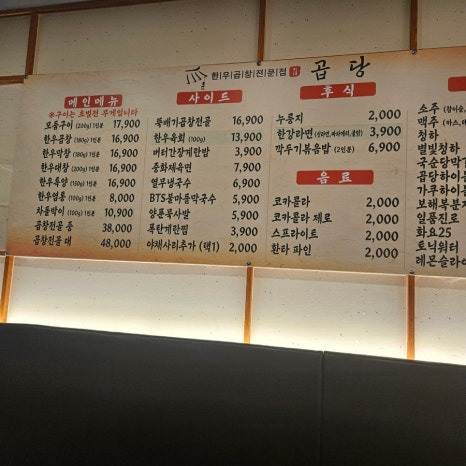 한우곱창전문점 곱당
메인메뉴
※구이는 초벌전 무게입니다
모둠구이 (200g) 1인분 17,900
한우곱창 (180g) 1인분 16,900
한우막창 (180g) 1인분 16,900
한우대창 (200g) 1인분 16,900
한우특양 (150g) 1인분 16,900
한우염통 (100g) 1인분 8,000
차돌박이 (100g) 1인분 10,900
곱창전골 중 38,000
곱창전골 대 48,000
사이드
뚝배기곱창전골 16,900
한우육회 (100g) 13,900
버터간장계란밥 3,900
중화제육면 7,900
열무냉국수 6,900
BTS불마늘막국수 5,900
양푼묵사발 5,900
폭탄계란찜 3,900
야채사리추가 (택1) 2,000
후식
누룽지 2,000
한강라면 3,900
깍두기볶음밥 (2인분) 6,900
음료
코카콜라 2,000
코카콜라 제로 2,000
스프라이트 2,000
환타 파인 2,000
소주
맥주
청하
별빛청하
국순당막
곱당하이
가쿠하이
보해복분
일품진로
화요25
토닉워터
레몬슬라이